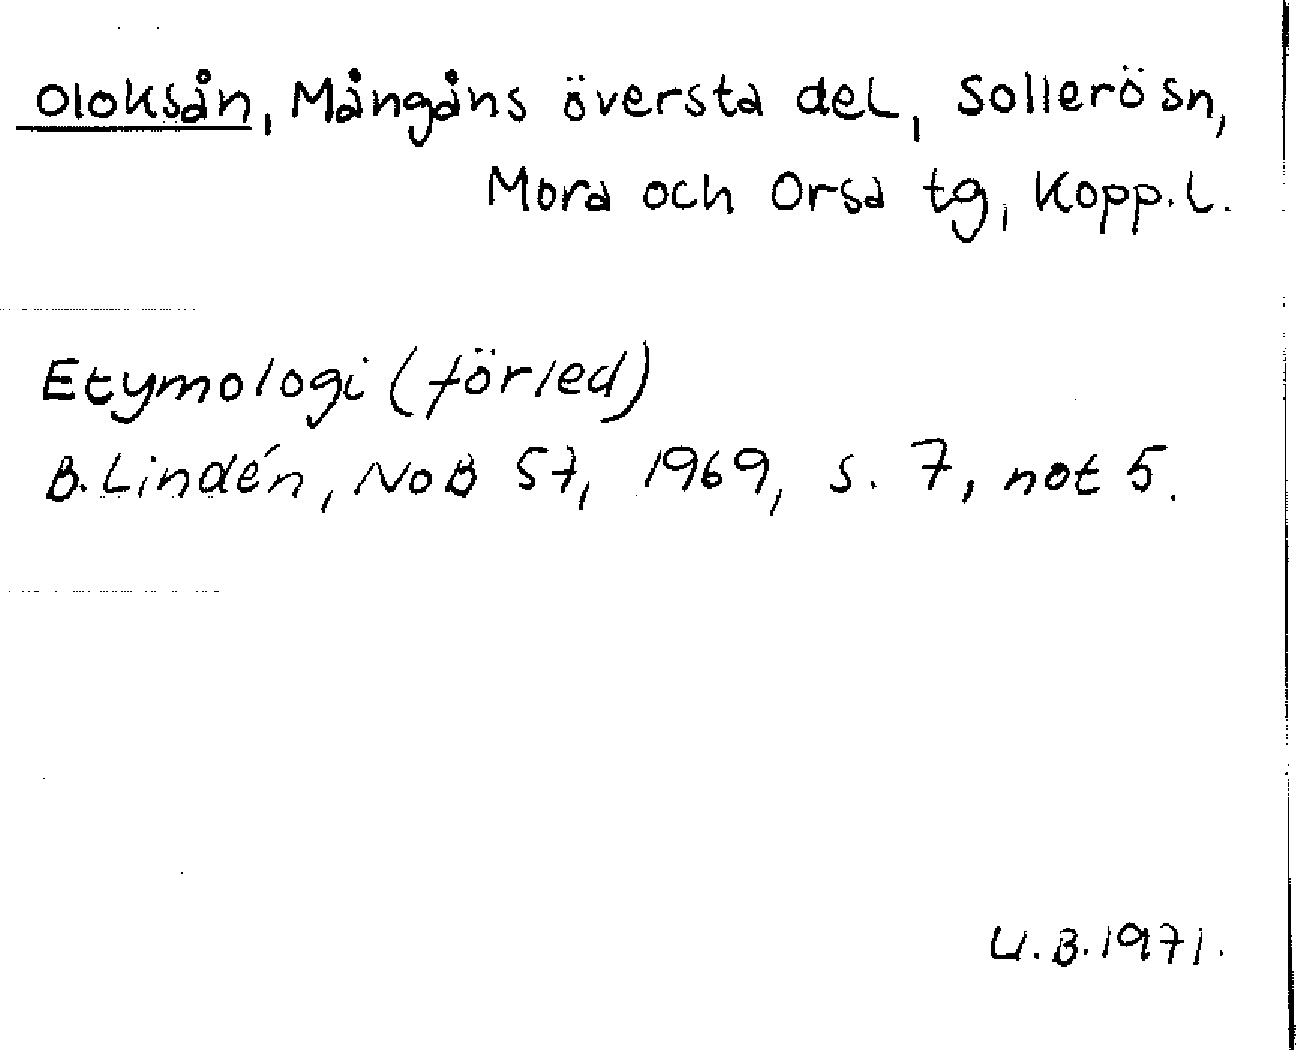 Oloksån, Mångåns översta del, Sollerö sn,
Mora och Orsa tg, Kopp. l.
Etymologi (förled)
B. Lindén, NoB 57, 1969, s. 7, not 5.
U. B. 1971.